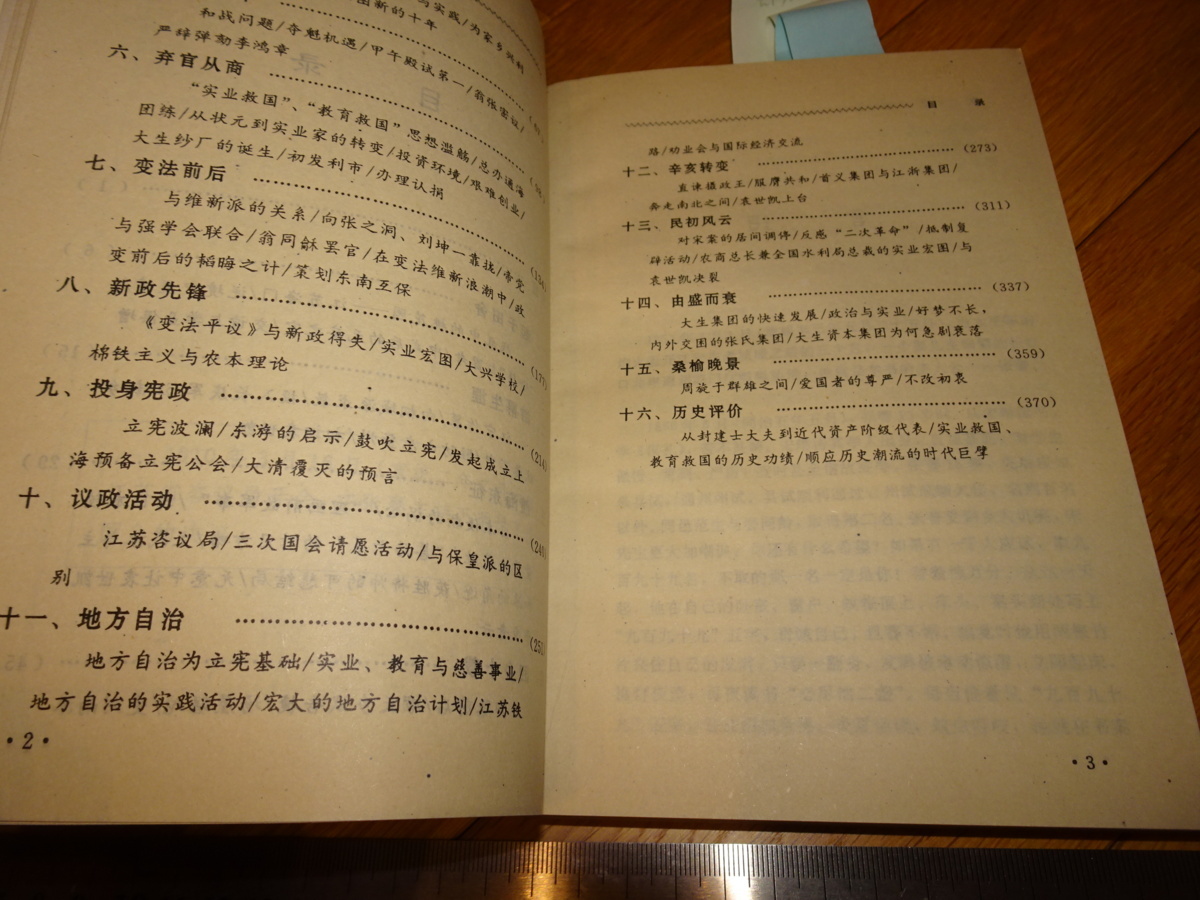 与实践/为家乡兴利
图新的十年
和战问题/夺魁机遇/甲午殿试第一/翁张密议/
严辞弹劾李鸿章
六、弃官从商
“实业救国”、“教育救国”思想滥觞/总办通海
团练/从状元到实业家的转变/投资环境/艰难创业/
大生纱厂的诞生/初发利市/办理认捐
七、变法前后
与维新派的关系/向张之洞、刘坤一靠拢/帝党
与强学会联合/翁同龢罢官/在变法维新浪潮中/政
变前后的韬晦之计/策划东南互保
八、新政先锋
《变法平议》与新政得失/实业宏图/大兴学校/
棉铁主义与农本理论
九、投身宪政 (214)
立宪波澜/东游的启示/鼓吹立宪/发起成立上
海预备立宪公会/大清覆灭的预言
十、议政活动 (240)
江苏咨议局/三次国会请愿活动/与保皇派的区
别
十一、地方自治 (251)
地方自治为立宪基础/实业、教育与慈善事业/
地方自治的实践活动/宏大的地方自治计划/江苏铁
·2·
目 录
路/劝业会与国际经济交流
十二、辛亥转变 (273)
直谏摄政王/服膺共和/首义集团与江浙集团/
奔走南北之间/袁世凯上台
十三、民初风云 (311)
对宋案的居间调停/反感“二次革命”/抵制复
辟活动/农商总长兼全国水利局总裁的实业宏图/与
袁世凯决裂
十四、由盛而衰 (337)
大生集团的快速发展/政治与实业/好梦不长,
内外交困的张氏集团/大生资本集团为何急剧衰落
十五、桑榆晚景 (359)
周旋于群雄之间/爱国者的尊严/不改初衷
十六、历史评价 (370)
从封建士大夫到近代资产阶级代表/实业救国、
教育救国的历史功绩/顺应历史潮流的时代巨擘
·3·